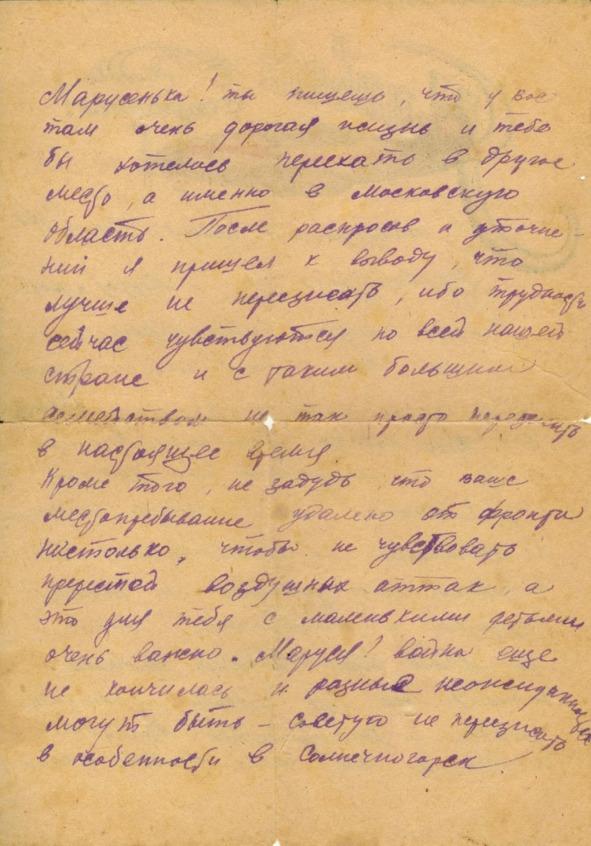 Марусенька! ты пишешь, что у вас
там очень дорогая жизнь и тебе
бы хотелось переехать в другое
место, а именно в Московскую
область. После распросов и уточне-
ний я пришел к выводу, что
лучше не переезжать, ибо трудности
сейчас чувствуются по всей нашей
стране и с таким большим
семейством не так просто переехать
в настоящее время.
Кроме того, не забудь что ваше
местопребывание удалено от фронта
настолько, чтобы не чувствовать
воздушных аттак, а
это для тебя с маленькими детьми
очень важно. Маруся! война еще
не кончилась и разные неожиданности
могут быть – советую не переезжать
в особенности в Солнечногорск